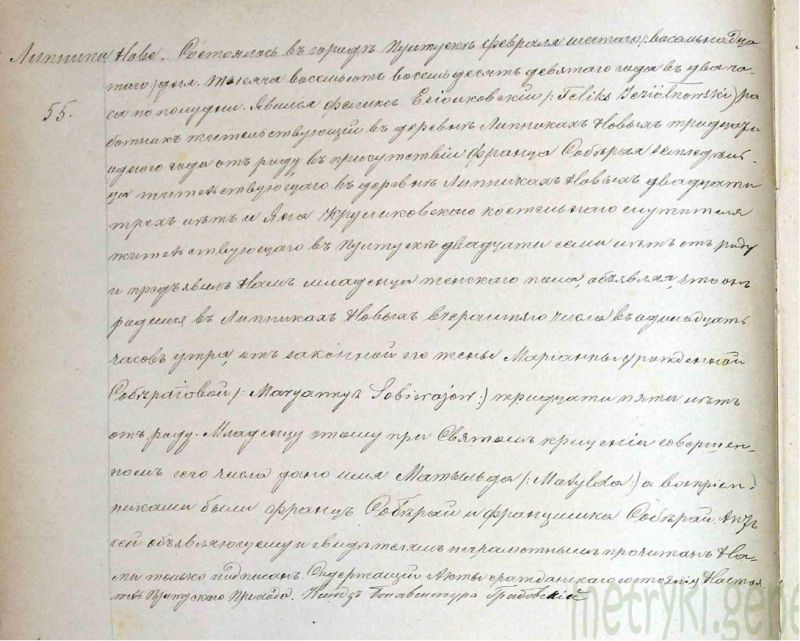 Липники Нове. Состоялось въ городѣ Пултускѣ февраля шестаго /:восемьнадца
55.
таго:/ дня. Тысяча восемьсотъ восемьдесятъ девятаго года въ два ча-
са по полудни. Явился Феликсъ Езіолковскій /: Feliks Jeziołkowski:/ ра
ботникъ жительствующій въ деревнѣ Липникахъ Новыхъ тридцати
одного года отъ роду въ присутствіи Франца Собѣрая земледѣль-
ца жительствующаго въ деревнѣ Липникахъ Новыхъ двадцати
трехъ лѣтъ и Яна костельнаго служителя
жительствующаго въ Пултускѣ двадцати семи лѣтъ отъ роду
и предъявилъ Намъ младенца женскаго пола, объявляя, что онъ
родился въ Липникахъ Новыхъ вчерашняго числа въ одинадцать
часовъ утра, отъ законной его жены Маріанны урожденной
Собѣраювой /: Maryanny Sobierajow:/ тридцати пяти лѣтъ
отъ роду. Младенцу этому при Святомъ крещеніи совершен-
номъ сего числа дано имя Матыльда /: Matylda :/ а воспріем-
никами были Францъ Собѣрай и Францишка Собѣрай. Актъ
сей объявляющему и свидѣтелямъ неграмотнымъ прочитанъ На-
ми только подписанъ. Содержащій Акты гражданскаго состоянія Настоя
тель Пултускаго Прихода. Ксендзъ Бонавентура Грабовскій
metryki.gene